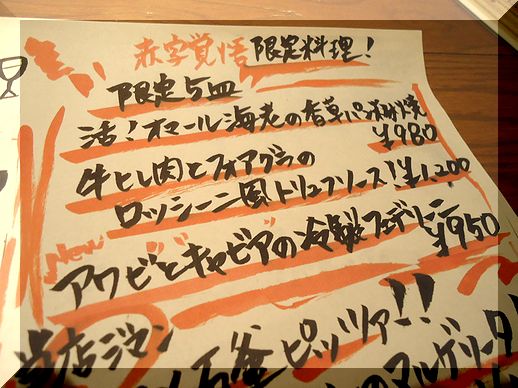 赤字覚悟限定料理!
限定5皿
活!オマール海老の香草パン粉焼
¥980
牛ヒレ肉とフォアグラの
ロッシーニ風トリュフソース!¥1,200
New
アワビとキャビアの冷製フェデリーニ
¥950
当店ジマン
石釜ピッツァ!!
マルゲリータ